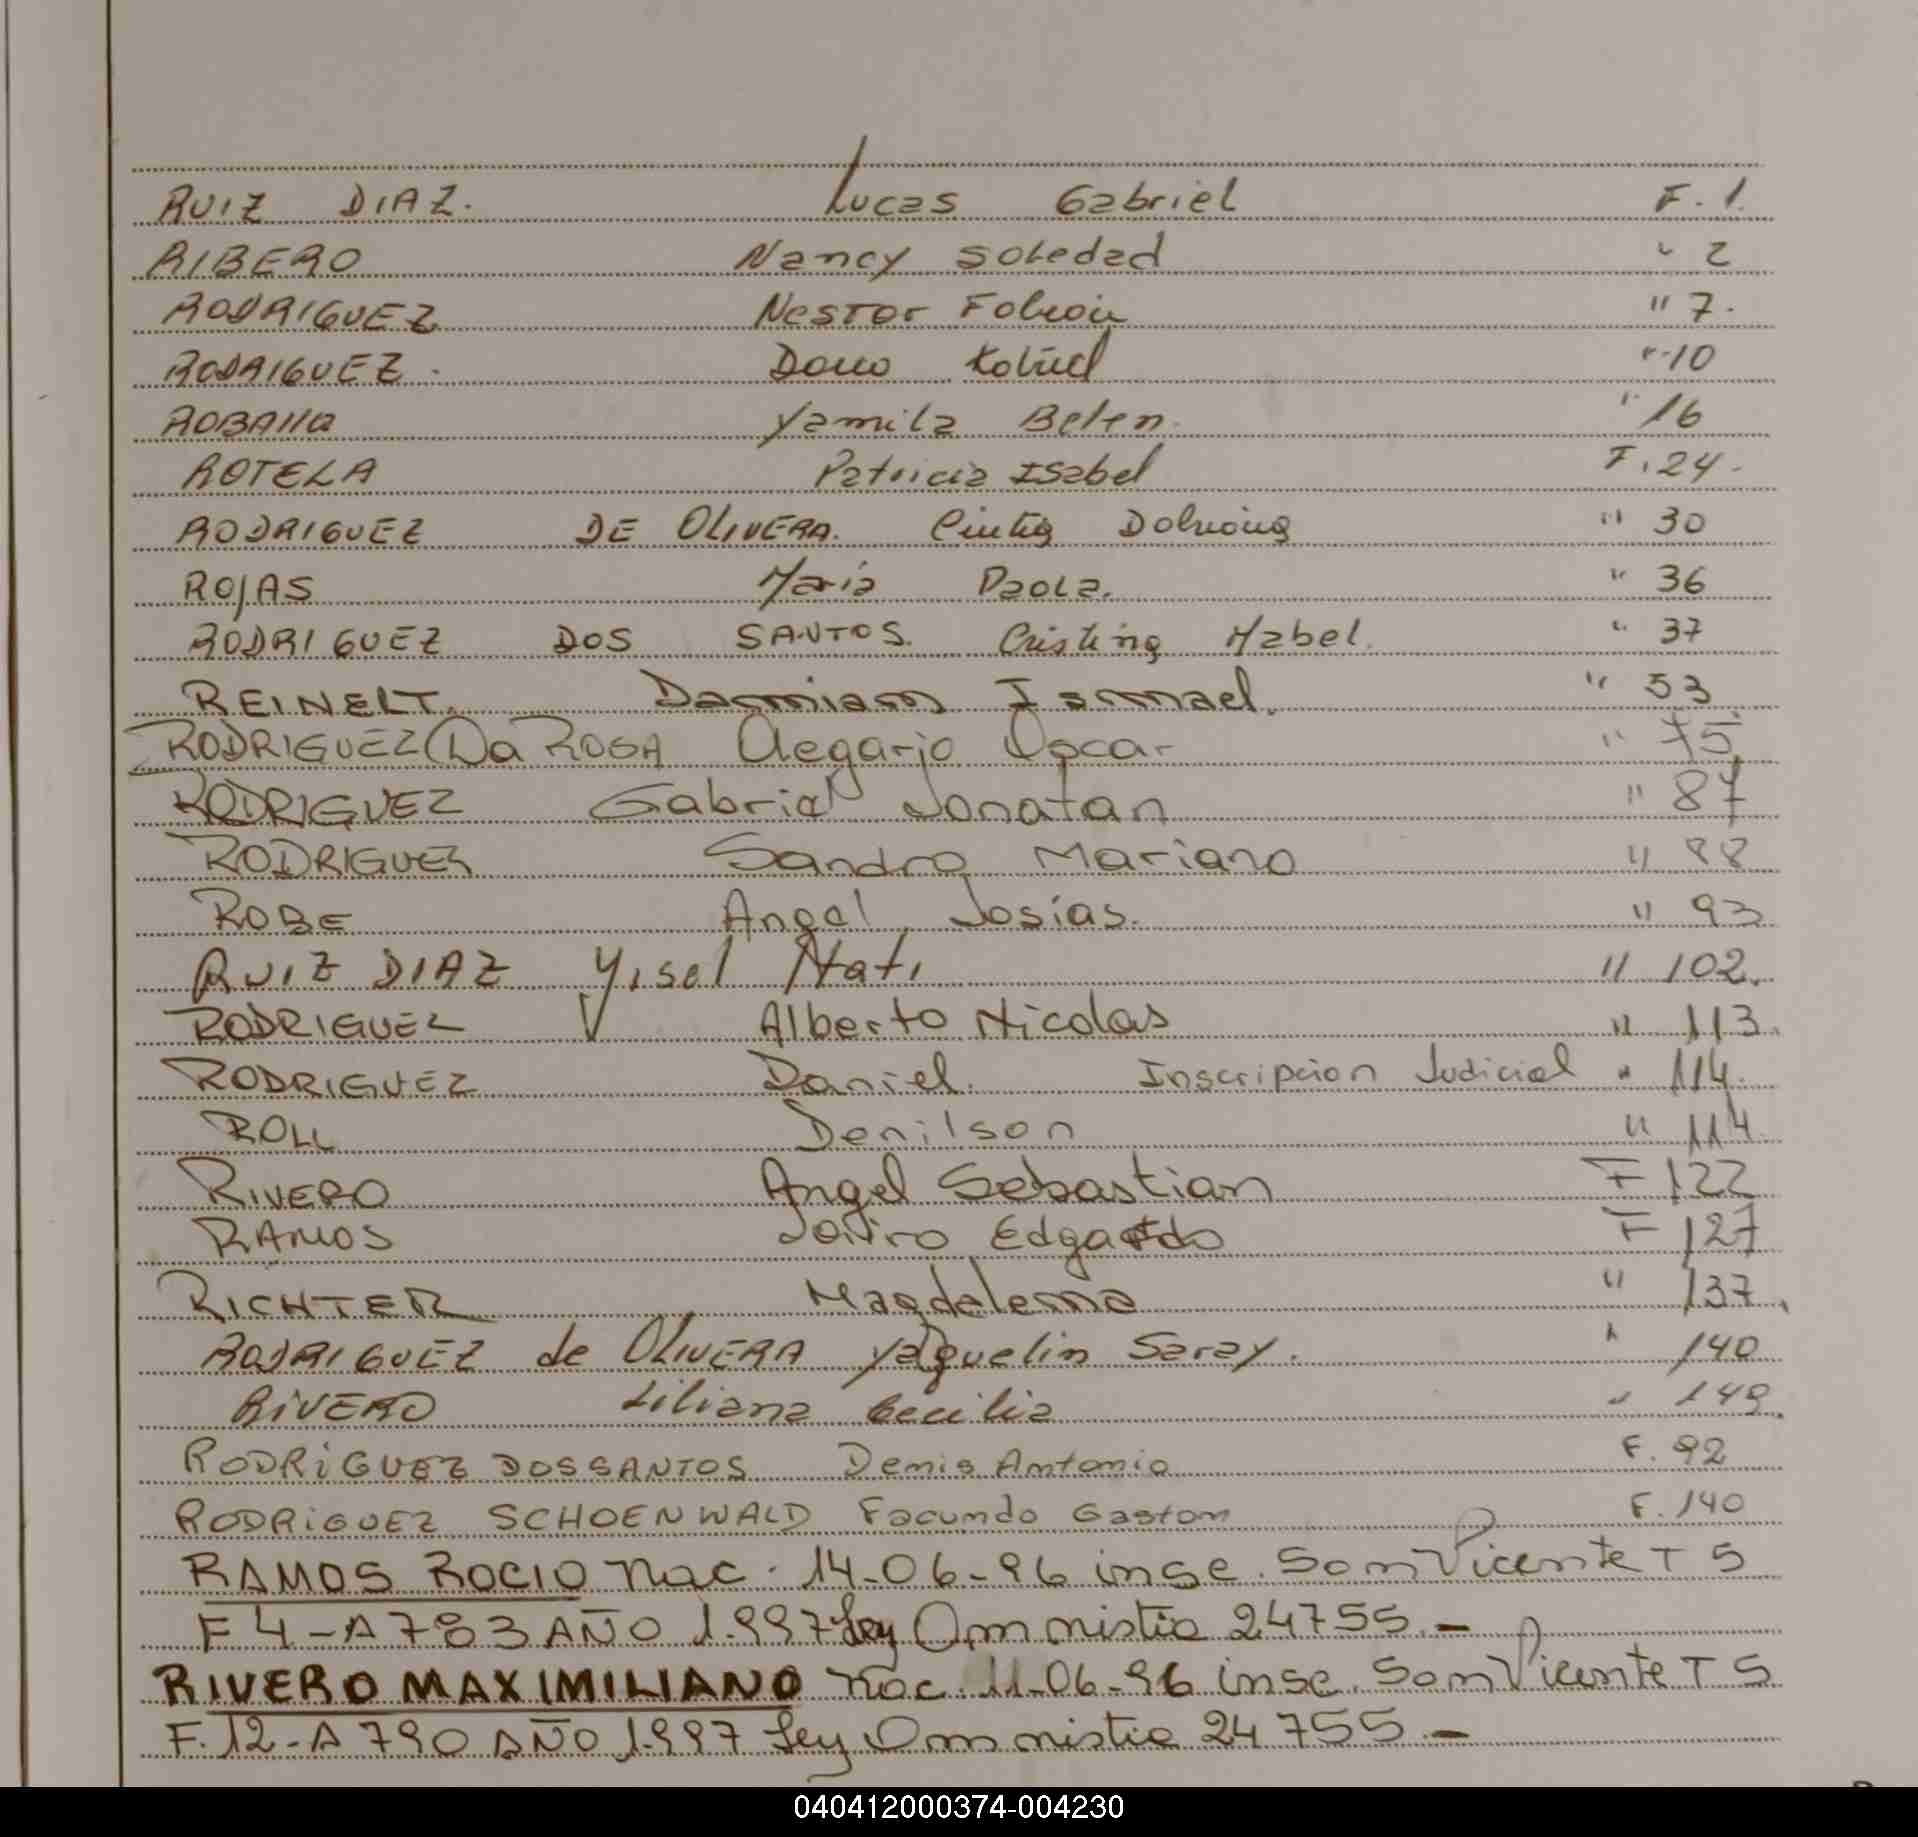 RUIZ DIAZ. Lucas Gabriel F. 1.
RIBERO Nancy Soledad " 2
RODRIGUEZ Nestor Fabian " 7.
RODRIGUEZ. Dario " 10
ROBAINA Yamila Belen. " 16
ROTELA Patricia Isabel F. 24.
RODRIGUEZ DE OLIVERA. Cintia " 30
ROJAS Maria Paola. " 36
RODRIGUEZ DOS SANTOS. Cristina Mabel. " 37
REINELT. Damian Ismael. " 53
RODRIGUEZ (Da ROSA Olegario Oscar " 75
RODRIGUEZ Gabriel Jonatan " 87
RODRIGUEZ Sandro Mariano " 88
ROBE Angel Josias. " 93
RUIZ DIAZ Yisel Nati " 102.
RODRIGUEZ Alberto Nicolas " 113.
RODRIGUEZ Daniel. Inscripcion Judicial " 114.
ROLL Denilson " 114.
RIVERO Angel Sebastian F 122
RAMOS Edgardo F 127
RICHTER Magdalena " 137.
RODRIGUEZ de OLIVERA Yaquelin Saray. " 140
RIVERO Liliana Cecilia " 149.
RODRIGUEZ DOSSANTOS Denis Antonio F. 92
RODRIGUEZ SCHOENWALD Facundo Gaston F. 140
RAMOS ROCIO Nac. 14-06-96 insc. San Vicente T 5
F 4-A 783 AÑO 1.997 Ley Amnistia 24755.-
RIVERO MAXIMILIANO Nac. 11-06-96 insc. San Vicente T 5
F. 12-A 790 AÑO 1.997 Ley Amnistia 24755.-
040412000374-004230